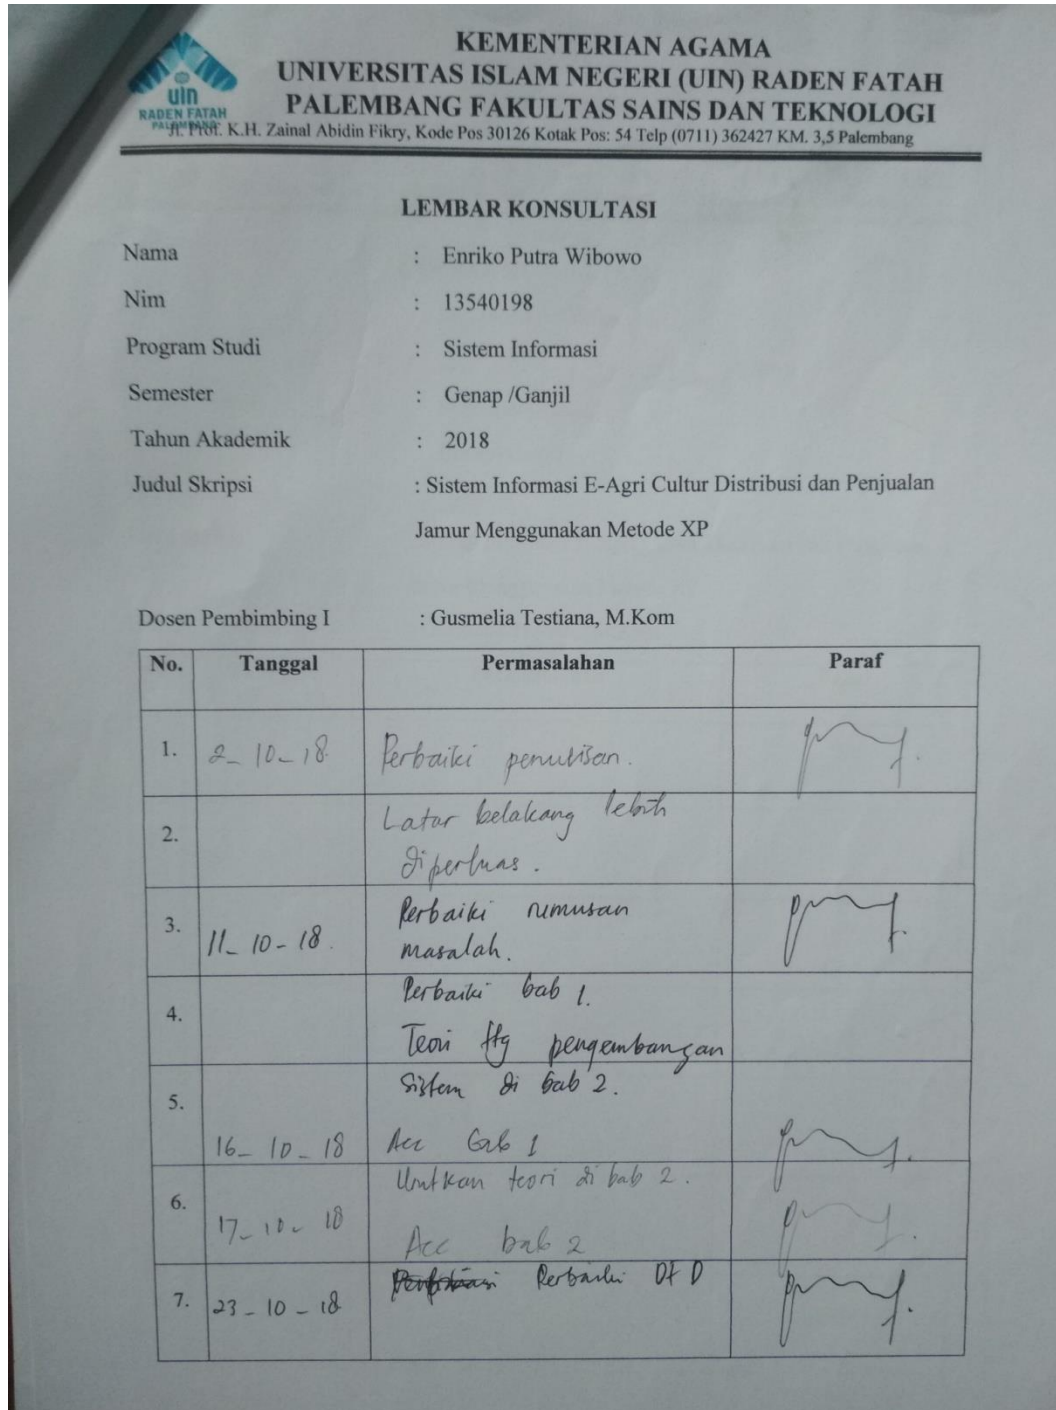 KEMENTERIAN AGAMA
UNIVERSITAS ISLAM NEGERI (UIN) RADEN FATAH
PALEMBANG FAKULTAS SAINS DAN TEKNOLOGI
uin
RADEN FATAH
PALEMBANG
Jl. Prof. K.H. Zainal Abidin Fikry, Kode Pos 30126 Kotak Pos: 54 Telp (0711) 362427 KM. 3,5 Palembang
LEMBAR KONSULTASI
Nama : Enriko Putra Wibowo
Nim : 13540198
Program Studi : Sistem Informasi
Semester : Genap /Ganjil
Tahun Akademik : 2018
Judul Skripsi : Sistem Informasi E-Agri Cultur Distribusi dan Penjualan
Jamur Menggunakan Metode XP
Dosen Pembimbing I : Gusmelia Testiana, M.Kom
No. Tanggal Permasalahan Paraf
1. 2-10-18 Perbaiki penulisan.
2. Latar belakang lebih
diperluas.
3. 11-10-18. Perbaiki rumusan
masalah.
4. Perbaiki bab 1.
Teori ttg pengembangan
5. sistem di bab 2.
16-10-18 Acc bab 1
6. Urutkan teori di bab 2.
17-10-18 Acc bab 2
7. 23-10-18 Perbaiki DFD